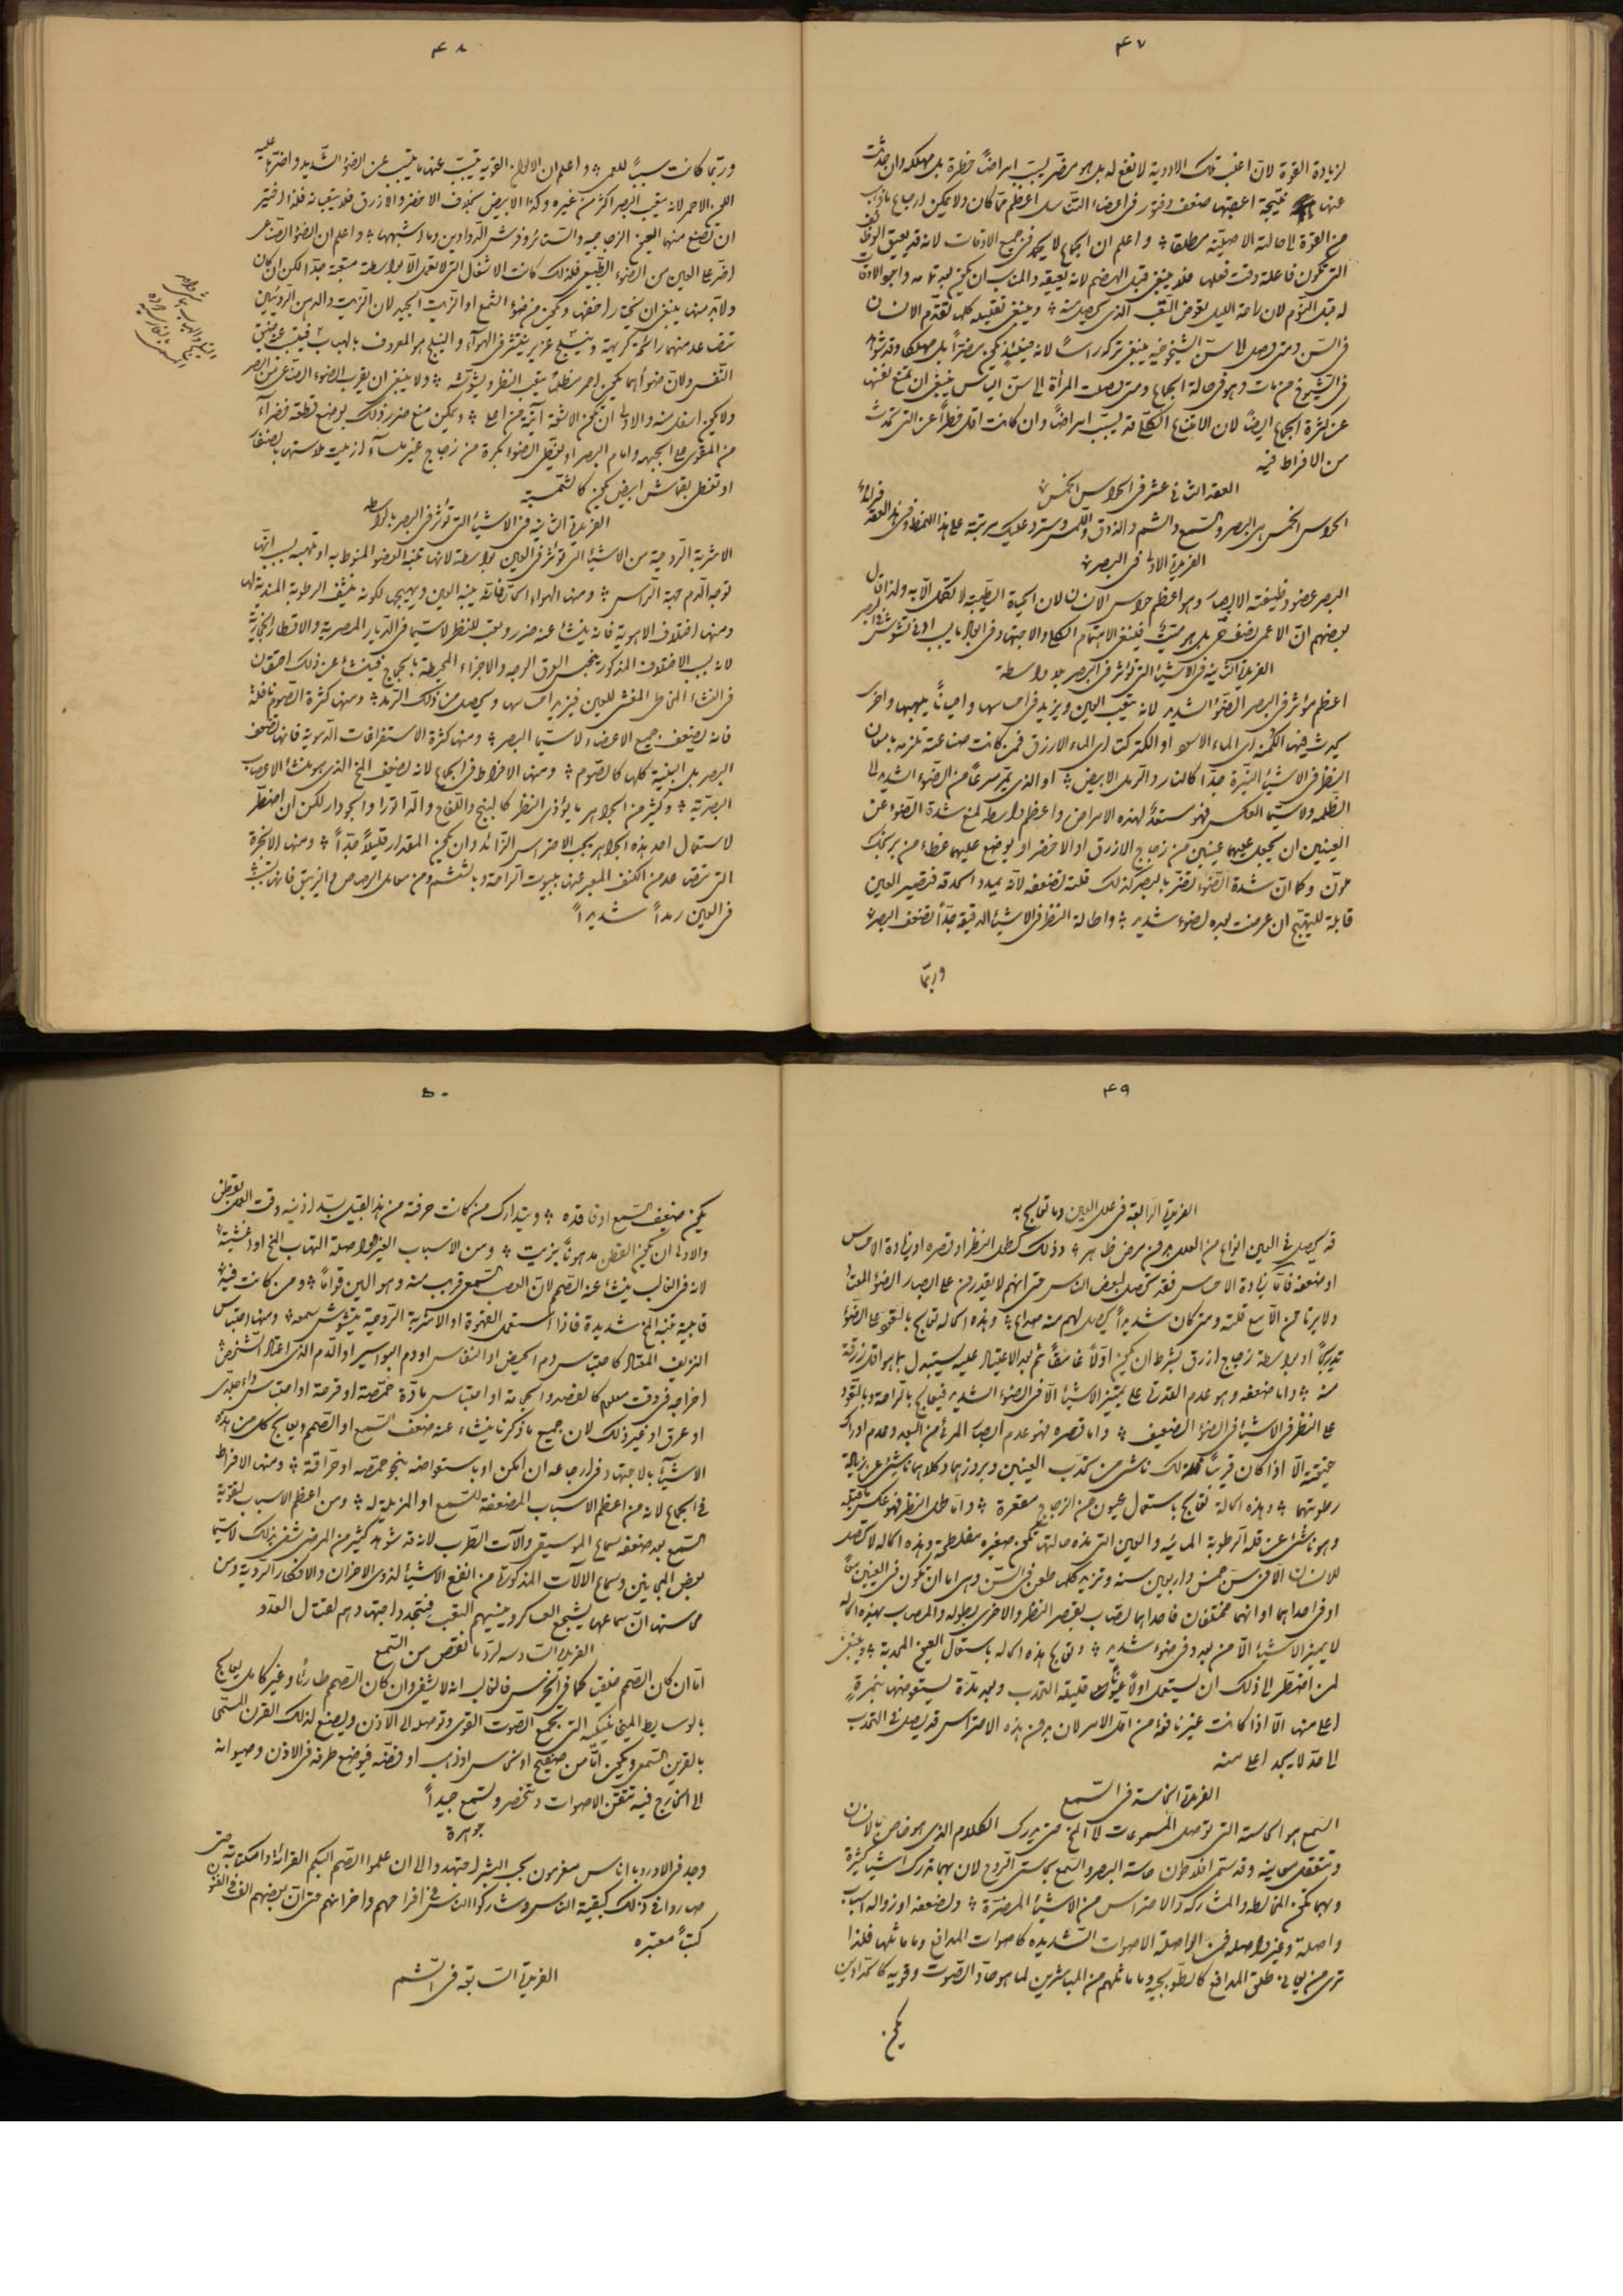 ٤٧
لزيادة القوة لان اغلب تلك الادوية لا نفع له بل هو مضر يسبب امراضاً خطرة بل مهلكة وان حدثت
عنها نتيجة اعقبتها ضعف وفتور في اعضاء التناسل اعظم مما كان ولا يمكن ارجاع ما ذهب
من القوة لحالته الاصلية مطلقا واعلم ان الجماع لا يحمد في جميع الاوقات لانه قد يعيق الوظائف
التي تكون فاعلة وقت فعلها فلا ينبغي قبل الهضم لانه يعيقه والمناسب ان يكون بعد تمامه واجود الاوقات
له قبل النوم لان راحة الليل تعوض التعب الذي يحصل منه وينبغي تقليله كلما تقدم الانسان
في السن ومتى وصل الى سن الشيخوخية ينبغي تركه راساً لانه حينئذ يكون مضراً بل مهلكا وقد شوهد
في الشيوخ من مات وهو في حالة الجماع ومتى وصلت المرأة الى سن الياس ينبغي ان تمنع نفسها
عن كثرة الجماع ايضاً لان الامتناع الكلي قد يسبب امراضاً وان كانت اقل خطراً عن التي تحدث
من الافراط فيه
العقد الثاني عشر في الحواس الخمس
الحواس الخمس هي البصر والسمع والشم والذوق واللمس وسترد عليك مرتبة على هذا النمط وفي هذا العقد فرائد
الفريدة الاولى في البصر
البصر عضو وظيفته الابصار وهو اعظم حواس الانسان لان الحياة الطيبة لا تكمل الا به ولذا قال
بعضهم ان الاعمى نصف حي بل هو ميت فينبغي الاهتمام الكلي والاجتهاد في ازالة ما يسبب ادنى تشوش في البصر
الفريدة الثانية في الاشياء التي تؤثر في البصر بلا واسطة
اعظم مؤثر في البصر الضوء الشديد لانه يتعب العين ويزيد في احساسها واحياناً يلهبها واخرى
يحدث فيها الكمنة اي الماء الاسود او الكتركتا اي الماء الازرق فمن كانت صناعته تلزمه بامعان
النظر في الاشياء النيرة جدا كالنار والرمل الابيض او الذي يمر سرعاً من الضوء الشديد الى
الظلمة ولا سيما العكس فهو مستعد لهذه الامراض واعظم واسطة لمنع شدة الضوء عن
العينين ان يجعل عليهما عينين من زجاج الازرق او الاخضر او يوضع عليهما غطاء من برنجك
ملون وكما ان شدة الضوء تضر بالبصر كذلك قلته تضعفه لانه يمدد الحدقة فتصير العين
قابلة للتهيج ان عرضت بعده لضوء شديد واطالة النظر في الاشياء الدقيقة جداً تضعف البصر
وربما
٤٨
وربما كانت سبباً للعمى واعلم ان الالوان القوية يتجنب عنها ما يتجنب عن الضوء الشديد واضرها عليه
اللون الاحمر لانه يتعب البصر اكثر من غيره وكذا الابيض بخلاف الاخضر والازرق فلا يتعبانه فلذا اختير
ان تصنع منهما العيون الزجاجية والستائر وفرش الدواوين وما اشبهها واعلم ان الضوء الصناعي
اضر على العين من الضوء الطبيعي فلذلك كانت الاشغال التي لا تعمل الا بواسطة متعبة جدا لكن ان كان
ولا بد منها ينبغي ان يختار اخفها ويكون من ضوء الشمع او الزيت الجيد لان الزيت والدهن الرديئين
تتصاعد منهما رائحة كريهة ونيلج غزير ينتشر في الهواء والنيلج هو المعروف بالهباب فيتعب عن ضيق
التنفس ولان ضوأهما يكون احمر مظلماً يتعب النظر ويشوشه ولا ينبغي ان يقرب الضوء الصناعي من البصر
ولا يكون اسفل منه والاولى ان تكون الاشعة آتية من اعلى ويمكن منع ضرر ذلك بوضع قطعة خضراء
من المقوى على الجبهة وامام البصر او يغطى الضوء بكرة من زجاج غير ملساء ازيلت ملاستها بالصنفرة
او تغطى بقماش ابيض يكون كالشمسية
الفريدة الثالثة في الاشياء التي تؤثر في البصر بالواسطة
الاشربة الروحية من الاشياء التي تؤثر في العين بواسطة لانها تنبه العضو المنوط به او تلهبه بسبب انها
توجه الدم جهة الراس ومنها الهواء الحار فانه ينبه العين ويهيجها لكونه ينشف الرطوبة المندية لها
ومنها اختلاف الاهوية فانه ينشأ عنه ضرر وتعب للنظر لا سيما في الديار المصرية والاقطار الحجازية
لانه بسبب الاختلاف المذكور ينحبس العرق الوجه والاجزاء المحيطة بالحجاج فينشأ عن ذلك احتقان
في الغشاء المخاطي المغشي للعين فيزيد احساسها ويحصل من ذلك الرمد ومنها كثرة الصوم نافلة
فانه يضعف جميع الاعضاء لا سيما البصر ومنها كثرة الاستفراغات الدموية فانها تضعف
البصر بل البنية كلها كالصوم ومنها الافراط في الجماع لانه يضعف المخ الذي هو منشأ الاعصاب
البصرية وكثير من الجواهر ما يؤذي النظر كالبنج واللفاح والداتورا والجودار لكن ان اضطر
لاستعمال احد هذه الجواهر يجب الاحتراس الزائد وان يكون المقدار قليلاً جداً ومنها الابخرة
التي تتصاعد من الكنف المعبر عنها ببيوت الراحة وبالششم ومن معامل الرصاص والزيبق فانها تسبب
في العين رمداً شديداً
٤٩
الفريدة الرابعة في علل العين وما تعالج به
قد يحصل في العين انواع من العلل بدون مرض ظاهر وذلك كطول النظر او قصره او زيادة الاحساس
او ضعفه فاما زيادة الاحساس فقد تحصل لبعض الناس حتى انهم لا يقدرون على ابصار الضوء المعتاد
ولا يرتاحون الا مع قلته ومتى كان شديداً يحصل لهم منه صداع وهذه الحالة تعالج بالتعود على الضوء
تدريجاً او بواسطة زجاج ازرق بشرط ان يكون اولاً غامقاً ثم بعد الاعتياد عليه يستبدل بما هو اقل زرقة
منه واما ضعفه وهو عدم القدرة على تمييز الاشياء الا في الضوء الشديد فيعالج بالراحة وبالتعود
على النظر في الاشياء في الضوء الضعيف واما قصره فهو عدم ابصار المرئي من البعد وعدم ادراك
حقيقته الا اذا كان قريباً وذلك ناشئ من تحدب العينين وبروزهما وكلاهما ناشئ عن زيادة
رطوبتهما وهذه الحالة تعالج باستعمال عيون من الزجاج مقعرة واما طول النظر فهو عكس ما قبله
وهو ناشئ عن قلة الرطوبة المائية والعين التي هذه حالتها تكون صغيرة مفلطحة وهذه الحالة لا تحصل
للانسان الا في سن خمس واربعين سنة وتزيد كلما طعن في السن وهي اما ان تكون في العينين معاً
او في احداهما او انهما مختلفتان فاحداهما تصاب بقصر النظر والاخرى بطوله والمصاب بهذه الحالة
لا يميز الاشياء الا من بعد وفي ضوء شديد وتعالج هذه الحالة باستعمال العيون المحدبة وينبغي
لمن اضطر الى ذلك ان يستعمل اولاً عيوناً قليلة التحدب وبعد مدة يستعوضها بنمرة
اعلى منها الا اذا كانت غير نافعة من اول الامر لان بدون هذه الاحتراس قد يصل في التحدب
الى حد لا يجد اعلى منه
الفريدة الخامسة في السمع
السمع هو الحاسة التي توصل المسموعات للمخ حتى يدرك الكلام الذي هو خاص بالانسان
وتتعقل معانيه وقد سمى افلاطون حاسة البصر والسمع بحاستي الروح لان بهما تدرك اشياء كثيرة
وبهما تكون المخالطة والمشاركة والاحتراس من الاشياء المضرة ولضعفه او زواله اسباب
واصلة وغير واصلة فمن الواصلة الاصوات الشديدة كاصوات المدافع وما ماثلها فلذا
ترى من يعاني طلق المدافع كالطوبجية وما ماثلهم من المباشرين لما هو حاد الصوت وقويه كالحدادين
يكون
٥٠
يكون ضعيف السمع او فاقده ويتدارك من كانت حرفته من هذا القبيل بسد اذنيه وقت العمل بقطن
والاولى ان يكون القطن مدهوناً بزيت ومن الاسباب الغير الواصلة التهاب المخ او اغشيته
لانه في الغالب ينشأ عنه الصمم لان العصب السمعي قريب منه وهو الين قواماً ومن كانت فيه
قابلية تنبه المخ شديدة فاذا استعمل القهوة او الاشربة الروحية يتشوش سمعه ومنها احتباس
النزيف المعتاد كاحتباس دم الحيض او النفاس او دم البواسير او الدم الذي اعتاد الشخص
اخراجه في وقت معلوم كالفصد والحجامة او احتباس مادة حمصة او قرحة او احتباس داء جلدي
او عرق او غير ذلك لان جميع ما ذكرنا ينشاء عنه ضعف السمع او الصمم ويعالج كل من هذه
الاشياء بالاجتهاد في ارجاعه ان امكن او باستعواضه بنحو حمصة او حراقة ومنها الافراط
في الجماع لانه من اعظم الاسباب المضعفة للسمع او المزيلة له ومن اعظم الاسباب لتقوية
السمع بعد ضعفه سماع الموسيقى وآلات الطرب لانه قد شوهد كثير من المرضى شفي بذلك لا سيما
بعض المجانين وسماع الآلات المذكورة من انفع الاشياء لذوي الاحزان والافكار الردية ومن
محاسنها ان سماعها يشجع العساكر وينسيهم التعب فيتجدد اجتهادهم لقتال العدو
الفريدة السادسة لرد ما نقص من السمع
اما ان كان الصمم خلقيا كما في الخرس فالغالب انه لا يشفى وان كان الصمم طارئا وغير كامل يعالج
بالوسايط الميخانيكية التي تجمع الصوت القوي وتوصله الى الاذن ويصنع لذلك القرن المسمى
بالقرين السمعي ويكون اما من صفيح او نحاس او ذهب او فضة فيوضع طرفه في الاذن وصيوانه
الى الخارج فيه تتقن الاصوات وتنحصر وتسمع جيداً
جوهرة
وجد في الاوروبا اناس مغرمون بحب البشر اجتهدوا الى ان علموا الصم البكم القرائة والكتابة حتى
صاروا في ذلك كبقية الناس وشاركوا الناس في افراحهم واحزانهم حتى ان بعضهم الف في الفنون
كتباً معتبره
الفريدة السابعة في الشم